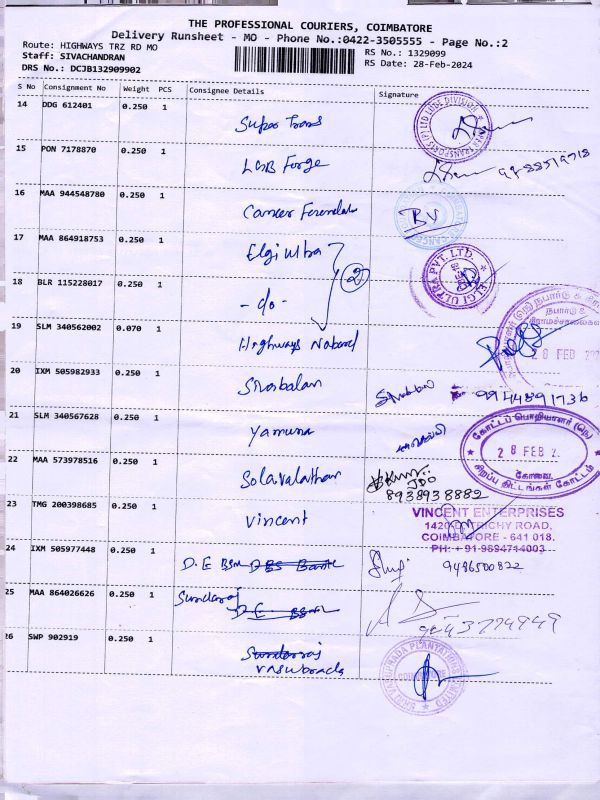 THE PROFESSIONAL COURIERS, COIMBATORE
Delivery Runsheet - MO - Phone No.:0422-3505555 - Page No.:2
Route: HIGHWAYS TRZ RD MO
Staff: SIVACHANDRAN
DRS No.: DCJB132909902
RS No.: 1329099
RS Date: 28-Feb-2024
S No Consignment No Weight PCS Consignee Details Signature
14 DDG 612401 0.250 1
Supar Trans
15 PON 7178870 0.250 1
LGB Forge
16 MAA 944548780 0.250 1
Cancer
BV
17 MAA 864918753 0.250 1
Elgi Ultra
2
ELGI ULTRA PVT. LTD.
18 BLR 115228017 0.250 1
-do-
19 SLM 340562002 0.070 1
Highways Nabard
நபார்டு &
20 FEB
20 IXM 505982933 0.250 1
Sivabalan
9944891736
21 SLM 340567628 0.250 1
Yamuna
கோட்டப் பொறியாளர் (நெ)
28 FEB 2
கோவை
சிறப்பு திட்டங்கள் கோட்டம்
22 MAA 573978516 0.250 1
JDO
8938938882
23 TMG 200398685 0.250 1
Vincent
VINCENT ENTERPRISES
TRICHY ROAD,
COIMBATORE - 641 018.
PH: + 91-9894714003
24 IXM 505977448 0.250 1
D.E BSNL DBS Bank
9486500822
25 MAA 864026626 0.250 1
Sundaraj
D.E. BSNL
9443774949
26 SWP 902919 0.250 1
Sundarraj